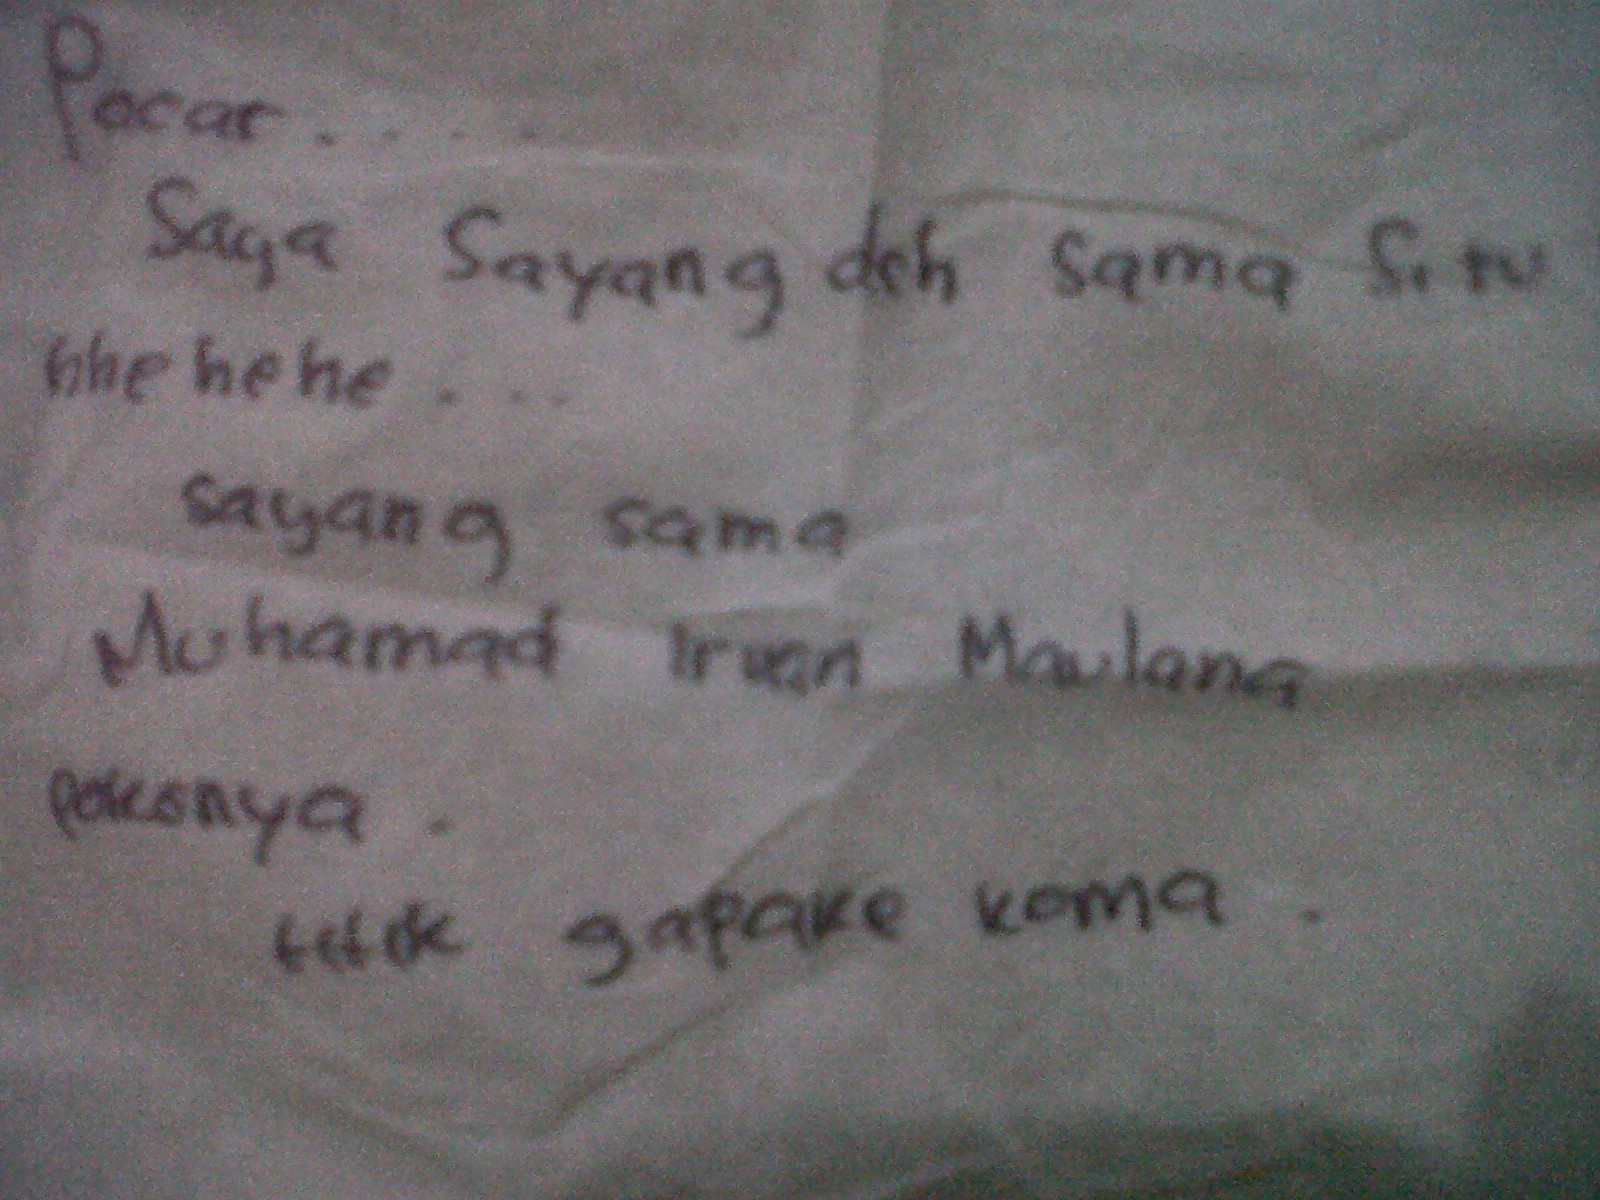 Pacar.....
Saya Sayang deh sama Situ
hhehehe....
sayang sama
Muhamad Irvan Maulana
pokonya.
titik gapake koma.